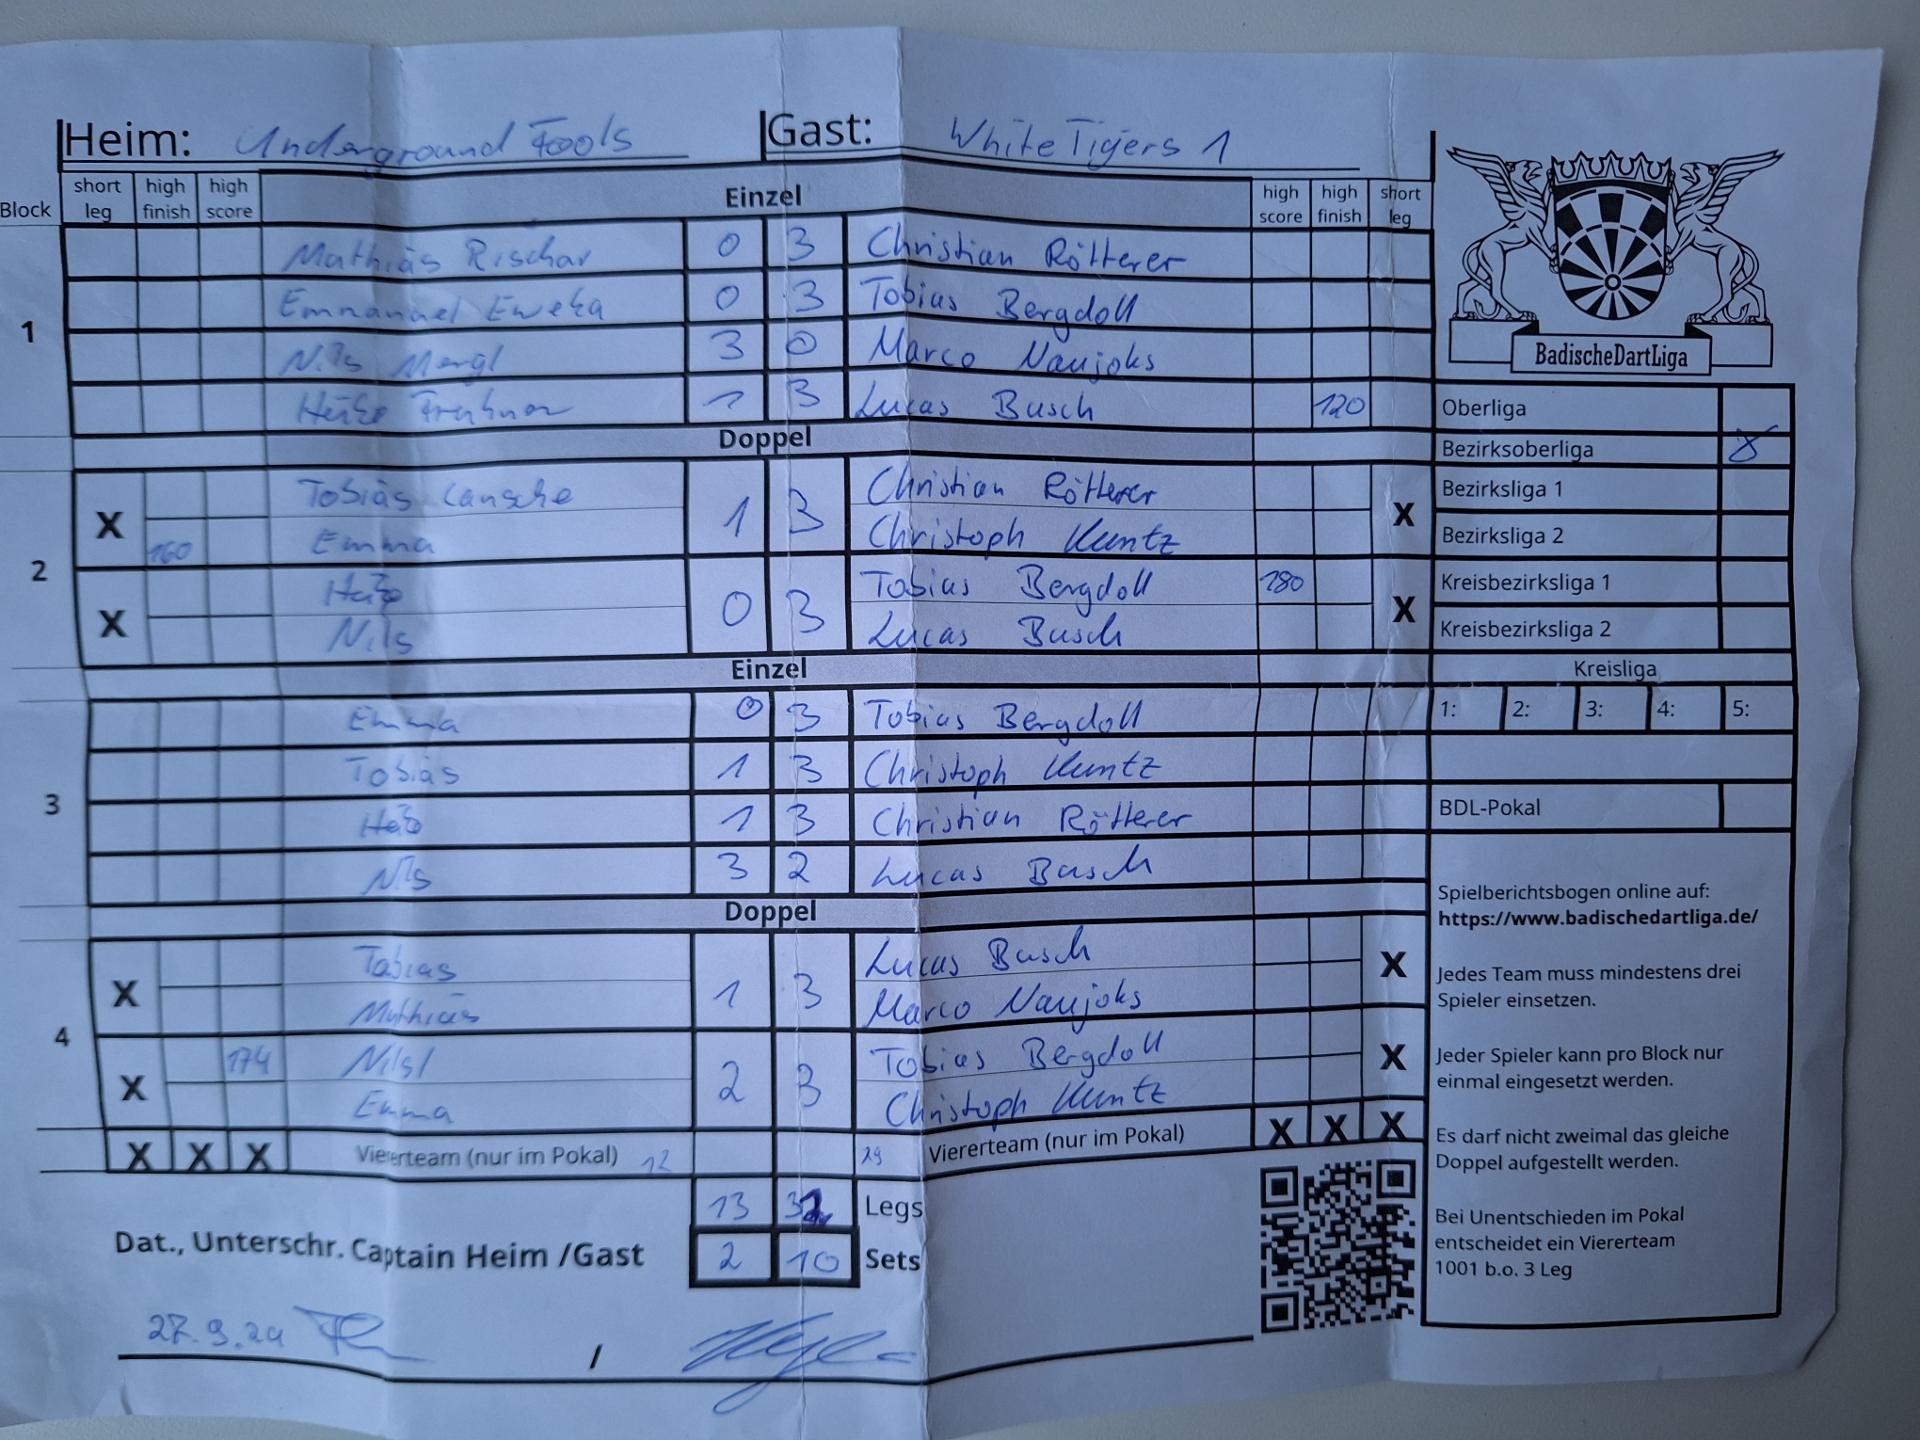 Heim: Underground Fools Gast: White Tigers 1
Block short leg high finish high score Einzel high score high finish short leg
1
Mathias Rischar 0 3 Christian Rötterer
Emmanuel Eweka 0 3 Tobias Bergdoll
Nils Mergl 3 0 Marco Naujoks
1 3 Lucas Busch 120
Doppel
2
X Tobias 1 3 Christian Rötterer X
160 Emma Christoph Kuntz
X 0 3 Tobias Bergdoll 180 X
Nils Lucas Busch
Einzel
3
Emma 0 3 Tobias Bergdoll
Tobias 1 3 Christoph Kuntz
1 3 Christian Rötterer
Nils 3 2 Lucas Busch
Doppel
4
X Tobias 1 3 Lucas Busch X
Mathias Marco Naujoks
X 174 2 3 Tobias Bergdoll X
Emma Christoph Kuntz
X X X Viererteam (nur im Pokal) 12 29 Viererteam (nur im Pokal) X X X
13 32 Legs
2 10 Sets
Dat., Unterschr. Captain Heim /Gast
27.9.24 /
BadischeDartLiga
Oberliga
Bezirksoberliga X
Bezirksliga 1
Bezirksliga 2
Kreisbezirksliga 1
Kreisbezirksliga 2
Kreisliga
1: 2: 3: 4: 5:
BDL-Pokal
Spielberichtsbogen online auf:
https://www.badischedartliga.de/
Jedes Team muss mindestens drei
Spieler einsetzen.
Jeder Spieler kann pro Block nur
einmal eingesetzt werden.
Es darf nicht zweimal das gleiche
Doppel aufgestellt werden.
Bei Unentschieden im Pokal
entscheidet ein Viererteam
1001 b.o. 3 Leg